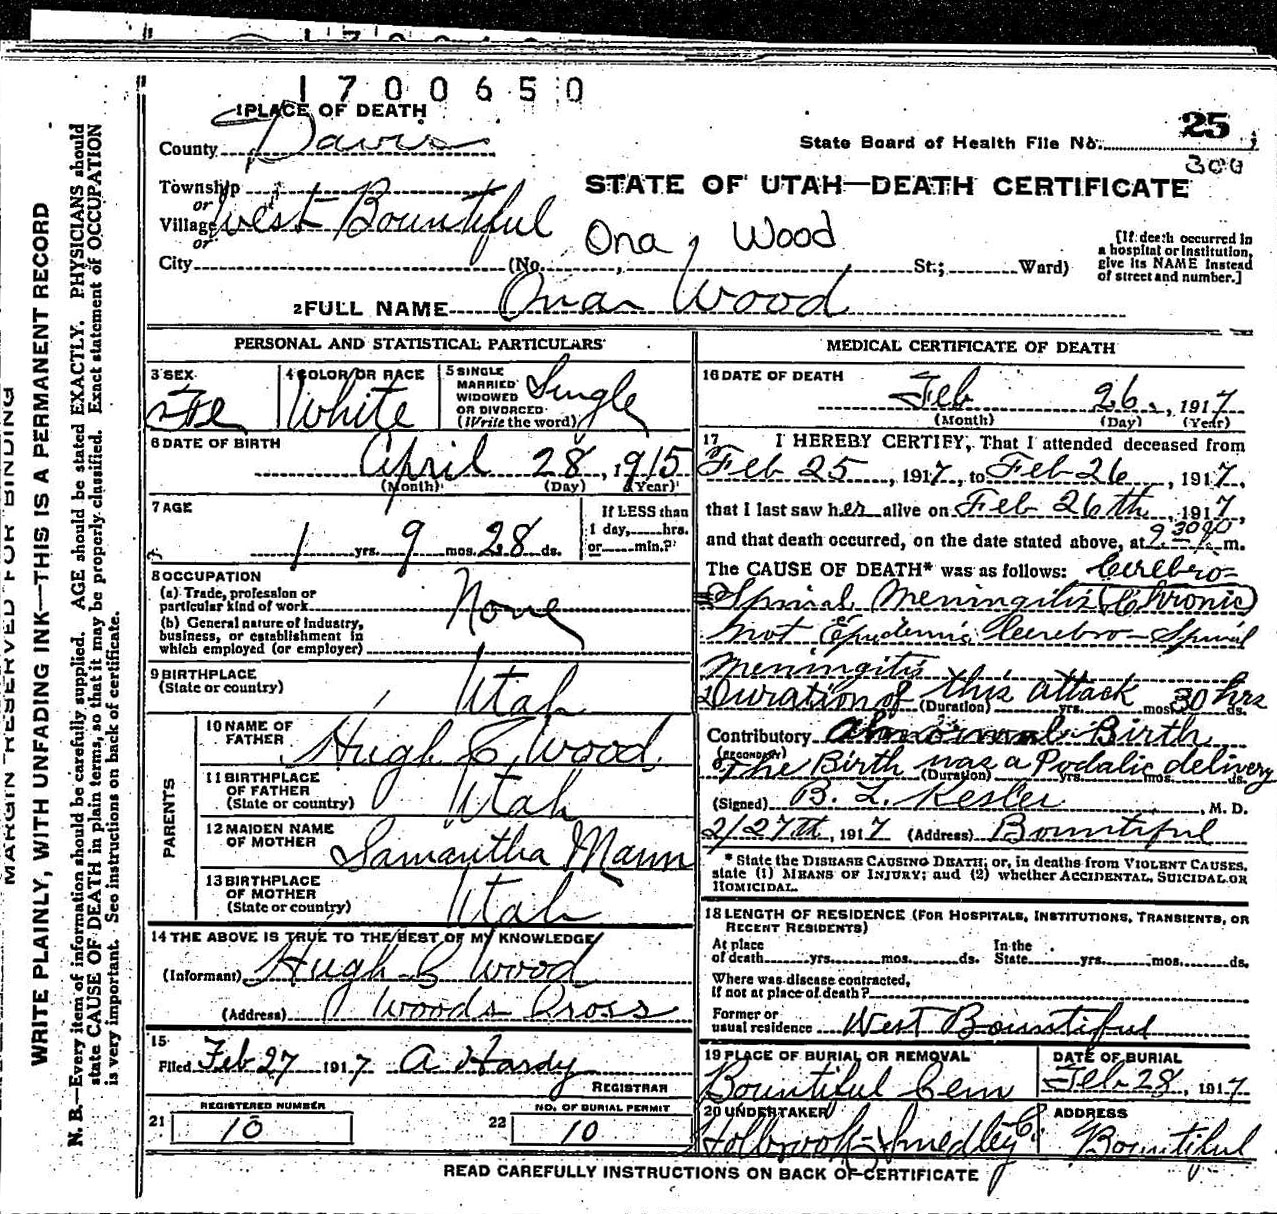 1700650
1 PLACE OF DEATH
County Davis
State Board of Health File No. 25
300
Township
or
Village West Bountiful
or
City (No. St.; Ward)
STATE OF UTAH—DEATH CERTIFICATE
Ona, Wood
[If death occurred in
a hospital or institution,
give its NAME instead
of street and number.]
2 FULL NAME Onar Wood
PERSONAL AND STATISTICAL PARTICULARS
3 SEX Fe
4 COLOR OR RACE White
5 SINGLE
MARRIED
WIDOWED
OR DIVORCED
(Write the word) Single
6 DATE OF BIRTH
April 28, 1915
(Month) (Day) (Year)
7 AGE
1 yrs. 9 mos. 28 ds.
If LESS than
1 day, hrs.
or min.?
8 OCCUPATION
(a) Trade, profession or
particular kind of work None
(b) General nature of industry,
business, or establishment in
which employed (or employer)
9 BIRTHPLACE
(State or country) Utah
PARENTS
10 NAME OF
FATHER Hugh C Wood
11 BIRTHPLACE
OF FATHER
(State or country) Utah
12 MAIDEN NAME
OF MOTHER Samantha Mann
13 BIRTHPLACE
OF MOTHER
(State or country) Utah
14 THE ABOVE IS TRUE TO THE BEST OF MY KNOWLEDGE
(Informant) Hugh C Wood
(Address) Woods Cross
15
Filed Feb 27 1917 A Hardy
REGISTRAR
21 REGISTERED NUMBER
10
22 NO. OF BURIAL PERMIT
10
MEDICAL CERTIFICATE OF DEATH
16 DATE OF DEATH
Feb 26, 1917
(Month) (Day) (Year)
17 I HEREBY CERTIFY, That I attended deceased from
Feb 25, 1917, to Feb 26, 1917,
that I last saw her alive on Feb 26th, 1917,
and that death occurred, on the date stated above, at 9:30 m.
The CAUSE OF DEATH* was as follows: Cerebro-
Spinal Meningitis (Chronic)
not Epidemic Cerebro-Spinal
Meningitis
Duration of this attack 30 hrs
(Duration) yrs. mos. ds.
Contributory abnormal Birth
(SECONDARY)
The Birth was a Podalic delivery
(Duration) yrs. mos. ds.
(Signed) B. L. Kesler, M. D.
2/27th, 1917 (Address) Bountiful
* State the DISEASE CAUSING DEATH; or, in deaths from VIOLENT CAUSES,
state (1) MEANS OF INJURY; and (2) whether ACCIDENTAL, SUICIDAL OR
HOMICIDAL.
18 LENGTH OF RESIDENCE (FOR HOSPITALS, INSTITUTIONS, TRANSIENTS, OR
RECENT RESIDENTS)
At place
of death yrs. mos. ds.
In the
State yrs. mos. ds.
Where was disease contracted,
if not at place of death?
Former or
usual residence West Bountiful
19 PLACE OF BURIAL OR REMOVAL
Bountiful Cem
DATE OF BURIAL
Feb 28, 1917
20 UNDERTAKER
Holbrook-Smedley C.
ADDRESS
Bountiful
READ CAREFULLY INSTRUCTIONS ON BACK OF CERTIFICATE
MARGIN RESERVED FOR BINDING
WRITE PLAINLY, WITH UNFADING INK—THIS IS A PERMANENT RECORD
N. B.—Every item of information should be carefully supplied. AGE should be stated EXACTLY. PHYSICIANS should
state CAUSE OF DEATH in plain terms, so that it may be properly classified. Exact statement of OCCUPATION
is very important. See instructions on back of certificate.